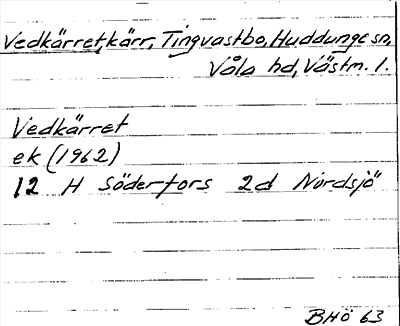 Vedkärret, kärr, Tingvastbo, Huddunge sn,
Våla hd, Västm. l.
Vedkärret
ek (1962)
12 H Söderfors 2d Nordsjö
BHÖ 63